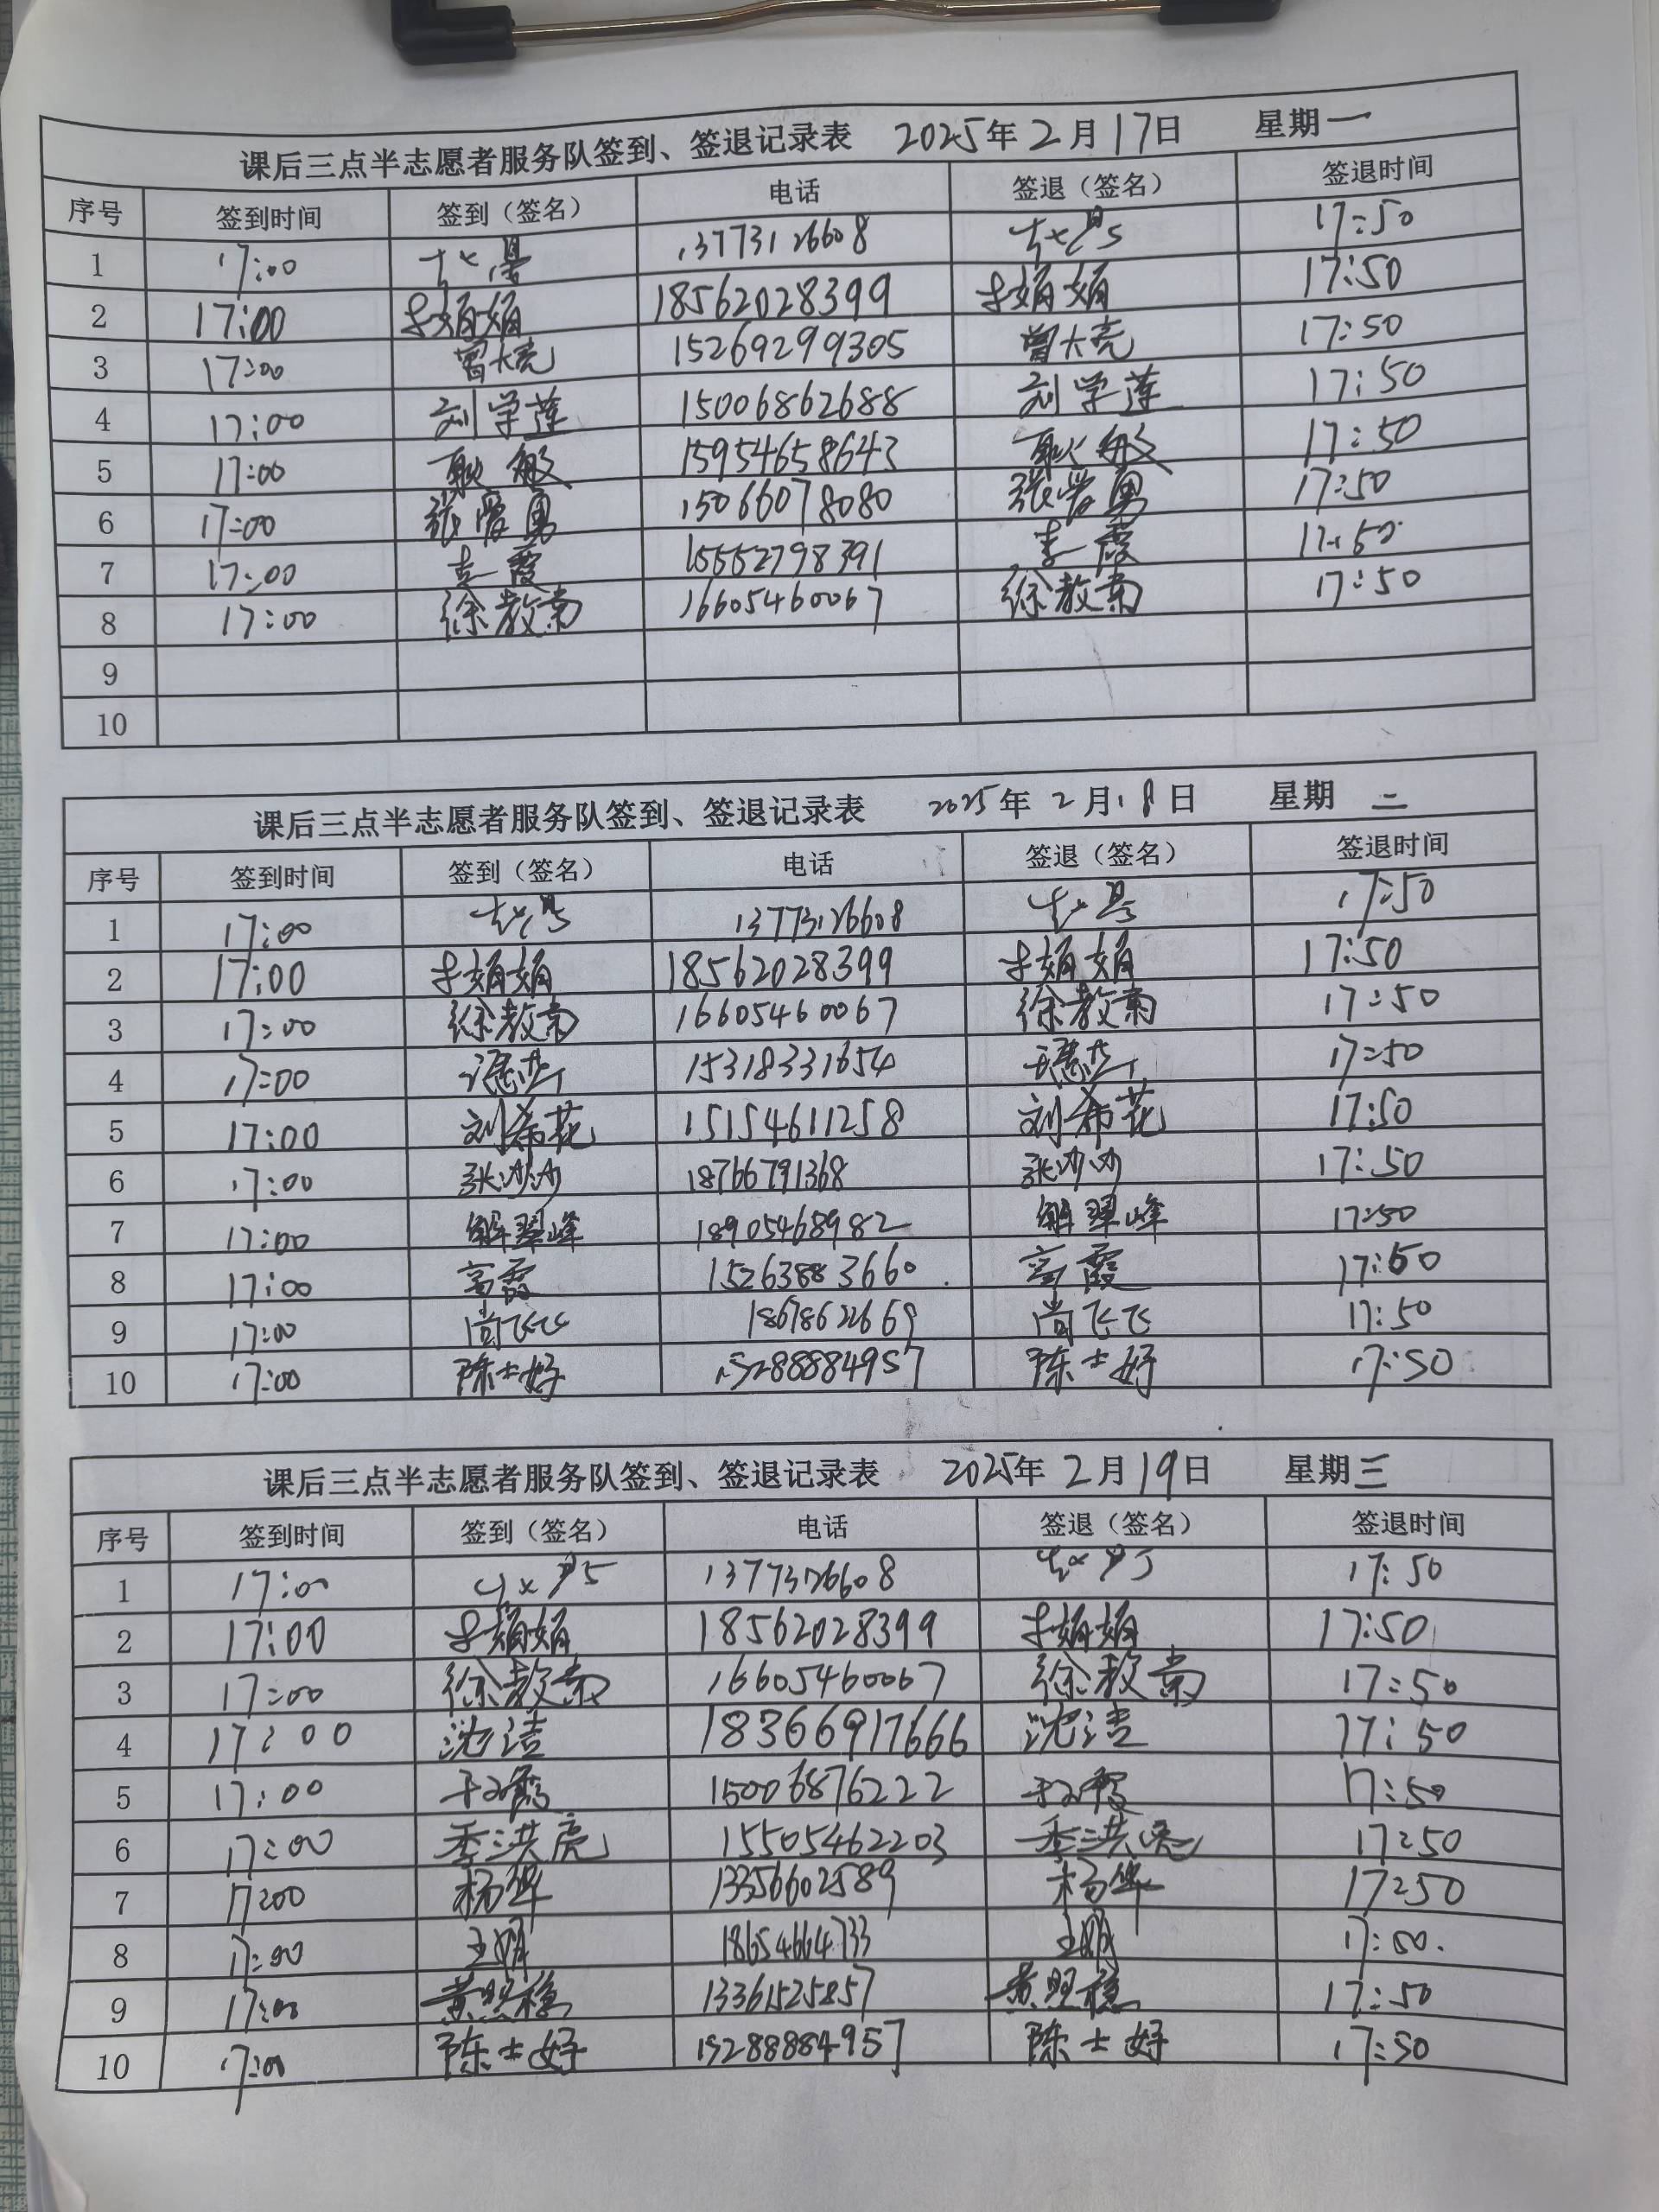 课后三点半志愿者服务队签到、签退记录表 2025年2月17日 星期一
序号 签到时间 签到（签名） 电话 签退（签名） 签退时间
1 17:00 13773126608 17:50
2 17:00 娟娟 18562028399 娟娟 17:50
3 17:00 曾大亮 15269299305 曾大亮 17:50
4 17:00 刘学莲 15006862688 刘学莲 17:50
5 17:00 耿敏 15954658643 耿敏 17:50
6 17:00 张爱勇 15066078080 张爱勇 17:50
7 17:00 霞 15552798391 霞 17:50
8 17:00 徐教南 16605460067 徐教南 17:50
9
10
课后三点半志愿者服务队签到、签退记录表 2025年2月18日 星期二
序号 签到时间 签到（签名） 电话 签退（签名） 签退时间
1 17:00 13773126608 17:50
2 17:00 娟娟 18562028399 娟娟 17:50
3 17:00 徐教南 16605460067 徐教南 17:50
4 17:00 15318331654 17:50
5 17:00 刘希花 15154611258 刘希花 17:50
6 17:00 张沙沙 18766791368 张沙沙 17:50
7 17:00 解翠峰 18905468982 解翠峰 17:50
8 17:00 高霞 15263883660 高霞 17:50
9 17:00 尚飞飞 18678622669 尚飞飞 17:50
10 17:00 陈士好 15288884957 陈士好 17:50
课后三点半志愿者服务队签到、签退记录表 2025年2月19日 星期三
序号 签到时间 签到（签名） 电话 签退（签名） 签退时间
1 17:00 13773126608 17:50
2 17:00 娟娟 18562028399 娟娟 17:50
3 17:00 徐教南 16605460067 徐教南 17:50
4 17:00 沈洁 18366917666 沈洁 17:50
5 17:00 15006876222 17:50
6 17:00 季洪亮 15505462203 季洪亮 17:50
7 17:00 杨华 13356602589 杨华 17:50
8 17:00 王 18654664733 王 17:50
9 17:00 黄照稳 13361525857 黄照稳 17:50
10 17:00 陈士好 15288884957 陈士好 17:50